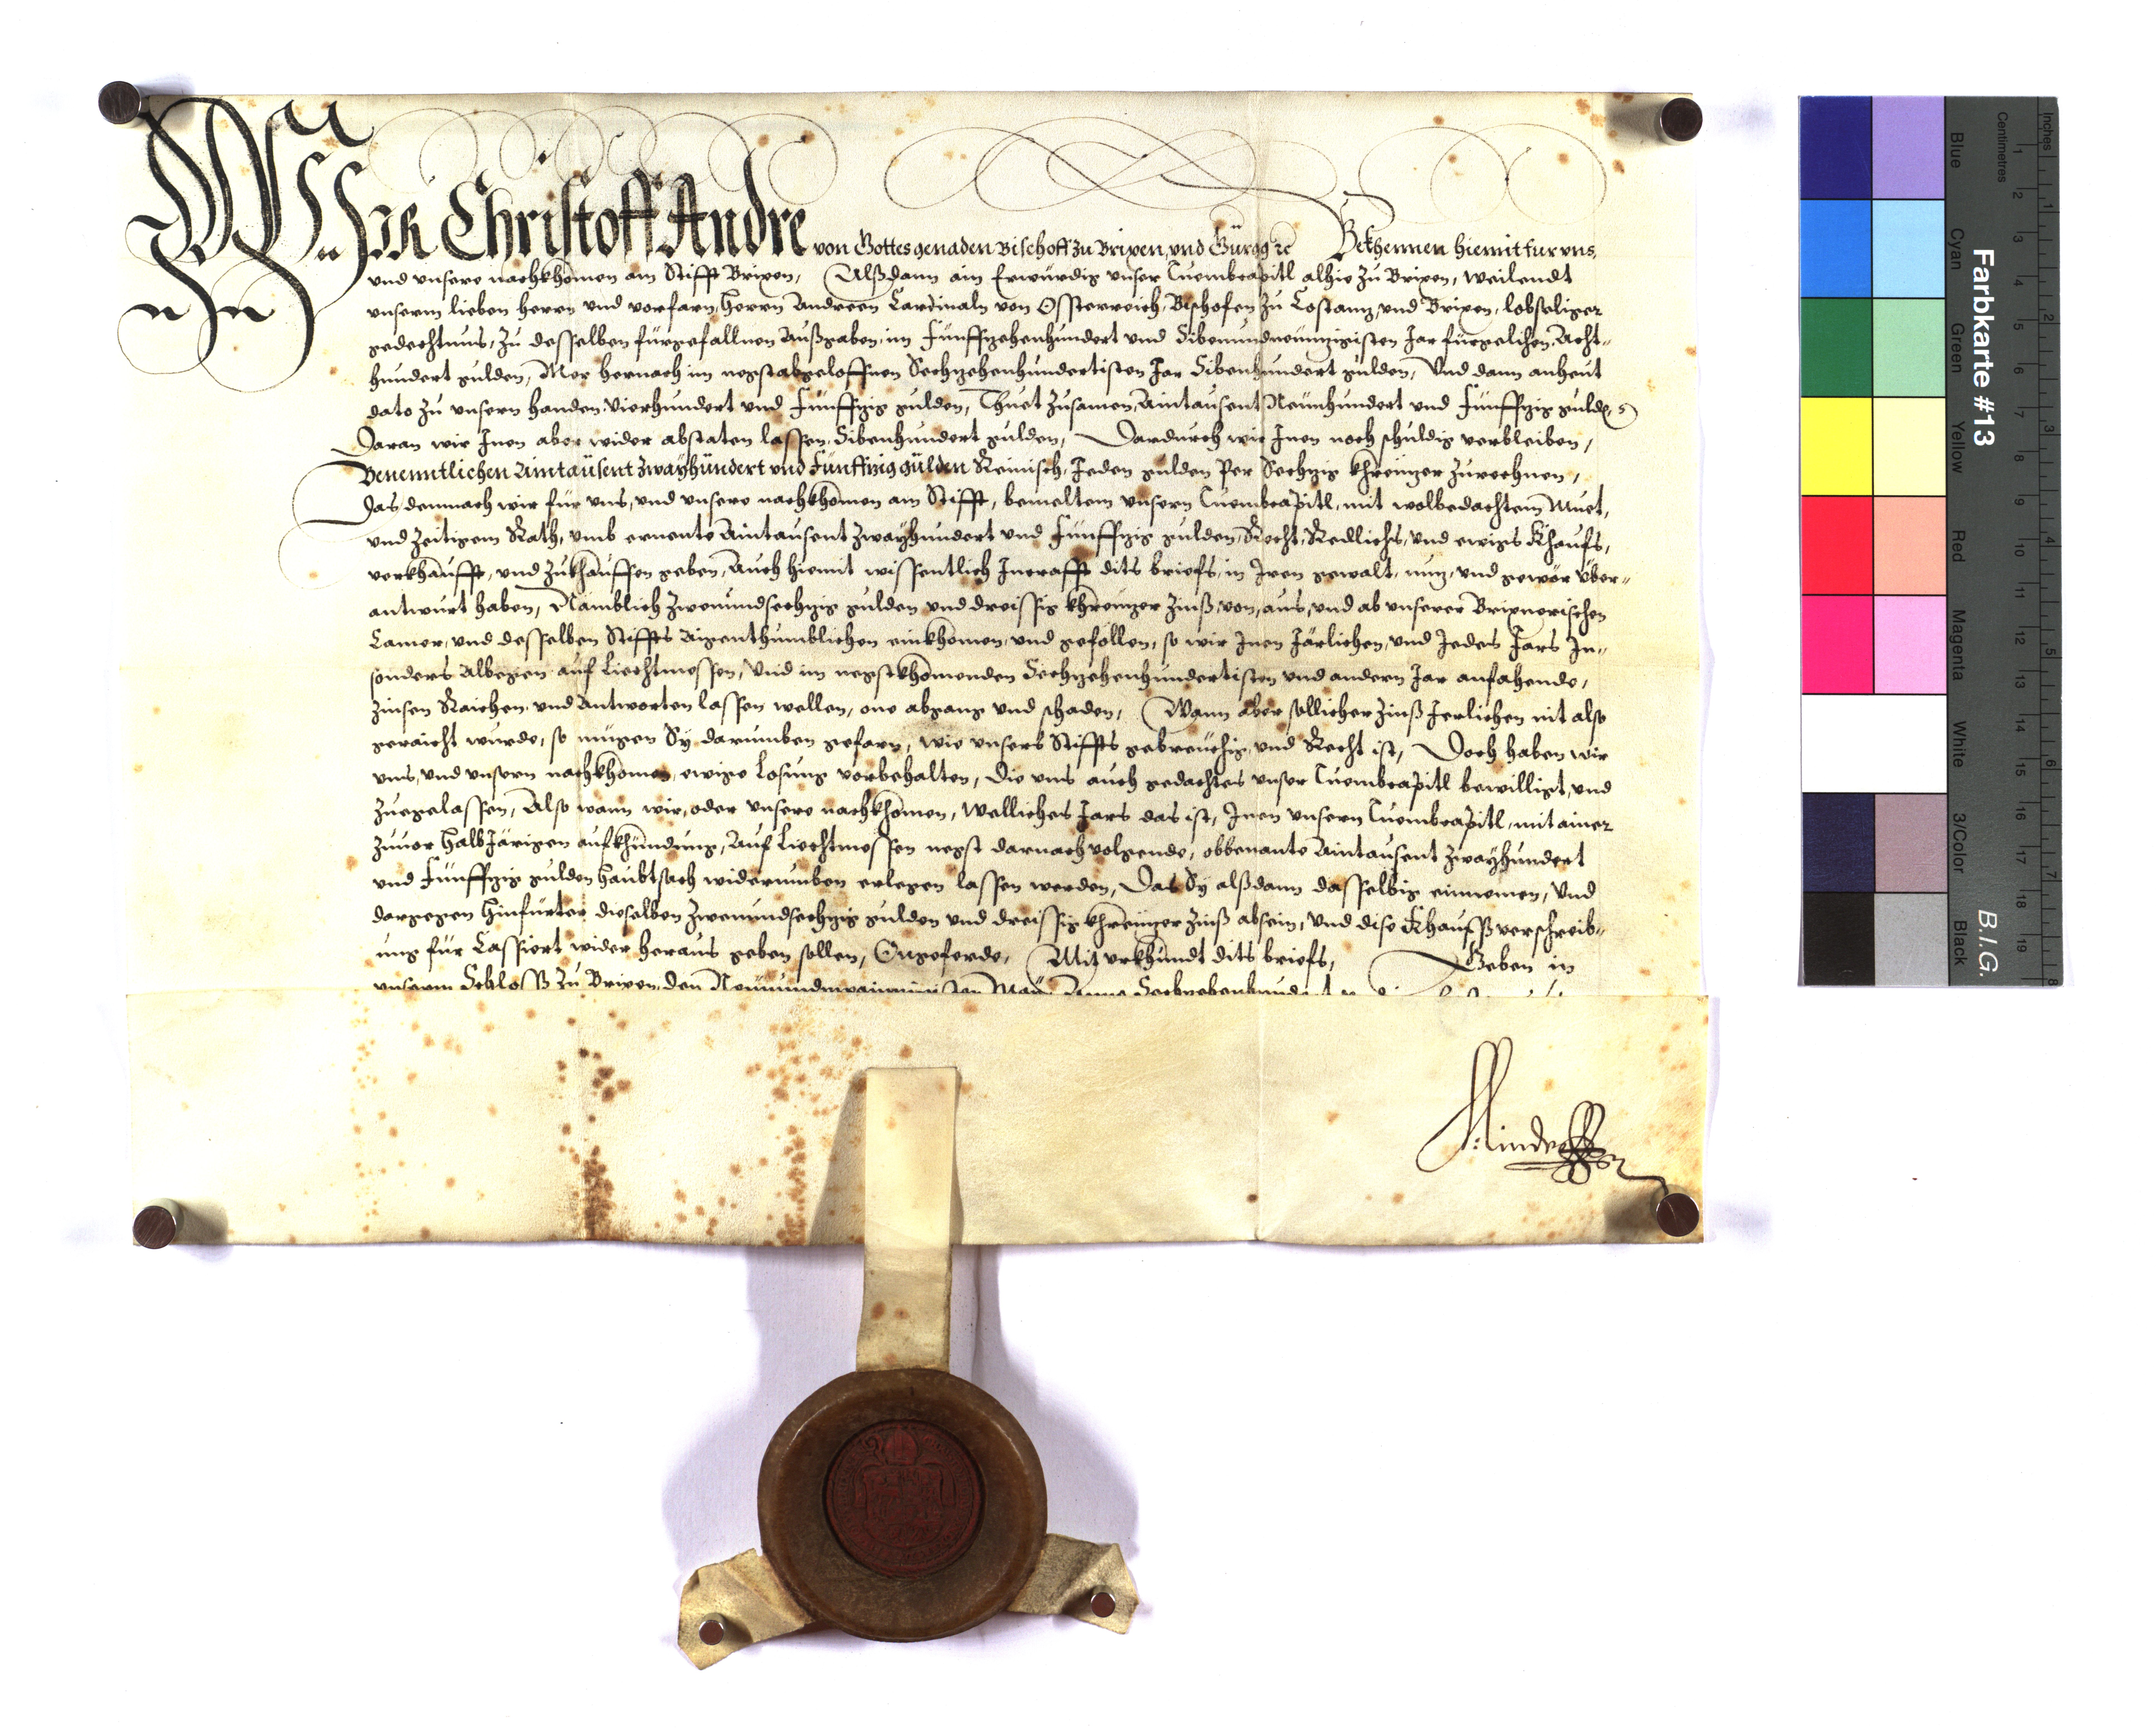 Wir Christoff Andre von Gottes genaden Bischoff zu Brixen, vnd Gurgg ꝛc Bekhennen hiemit fur vns,
vnd vnsere nachkhomen am Stifft Brixen, Alßdann ain Erwürdig vnser Tuembcapitl alhie zu Brixen, Weilendt
vnserm lieben herrn vnd vorfarn, herrn Andreen Cardinaln von Össterreich, Bischofen zu Costantz, vnd Brixen, lobseliger
gedechtnus, zu desselben fürgefallnen Außgaben, im Fünffzehenhundert vnd Sibenundneünzigisten Jar fürgelihen, Acht-
hundert gulden, Mer hernach im negstabgeloffnen Sechzehenhundertisten Jar Sibenhundert gulden, Vnd dann anheut
dato zu vnsern handen Vierhundert vnd Fünffzig gulden, Thuet zusamen, Aintausent Neunhundert vnd Fünffzig gulden,
Daran wir Inen aber wider abstaten lassen, Sibenhundert gulden, Dardurch wir Inen noch schuldig verbleiben,
Benenntlichen Aintausent zwayhundert vnd Funffzig gulden Reinisch, Jeden gulden Per Sechzig khreuzer zurechnen,
Das demnach wir für vns, vnd vnsere nachkhomen am Stifft, bemeltem vnserm Tuembcapitl, mit wolbedachtem Muet,
vnd zeitigem Rath, vmb ernente Aintausent zwayhundert vnd Fünffzig gulden, Recht, Redlichs, vnd ewigs Khaufs,
verkhaufft, vnd zukhauffen geben, Auch hiemit wissentlich Incrafft dits briefs, in Iren gewalt, nuz, vnd gewör über-
antwurt haben, Nämblich zwenundsechzig gulden vnd dreissig khreuzer zinß, von, aus, vnd ab vnserer Brixnerischen
Camer, vnd desselben Stiffts Aigenthumblichen einkhomen, vnd gefellen, so wir Inen Järlichen, vnd Jedes Jars In-
sonders Albegen auf Liechtmessen, Vnd im negstkhomenden Sechzehenhundertisten vnd andern Jar anfahende,
zinsen Raichen, vnd Antworten lassen wellen, one abgang vnd schaden, Wann aber sollicher zinß Jerlichen nit also
geraicht wurde, so mügen Sy darumben gefarn, wie vnsers Stiffts gebreuchig, vnd Recht ist, Doch haben wir
vns, vnd vnsern nachkhomen, ewige Losung vorbehalten, die vns auch gedachtes vnser Tuembcapitl bewilligt, vnd
zuegelassen, Also wann wir, oder vnsere nachkhomen, Welliches Jars das ist, Inen vnserm Tuembcapitl, mit ainer
zuuor halbJärigen aufkhündung, Auf Liechtmessen negst darnach volgende, obbenante Aintausent zwayhundert
vnd Fünffzig gulden haubtsach widerumben erlegen lassen werden, Das Sy alßdann dasselbig einnemen, Vnd
dargegen hinfürter, dieselben zwenundsechzig gulden vnd dreissig khreuzer zinß absein, Vnd dise Khaufßverschreib-
ung für Cassiert wider heraus geben sollen, Ongeferde, Mit vrkhundt dits briefs, Geben in
vnserm Schloss zu Brixen, den Neunundzwainzigisten May, Anno Sechzehenhundert